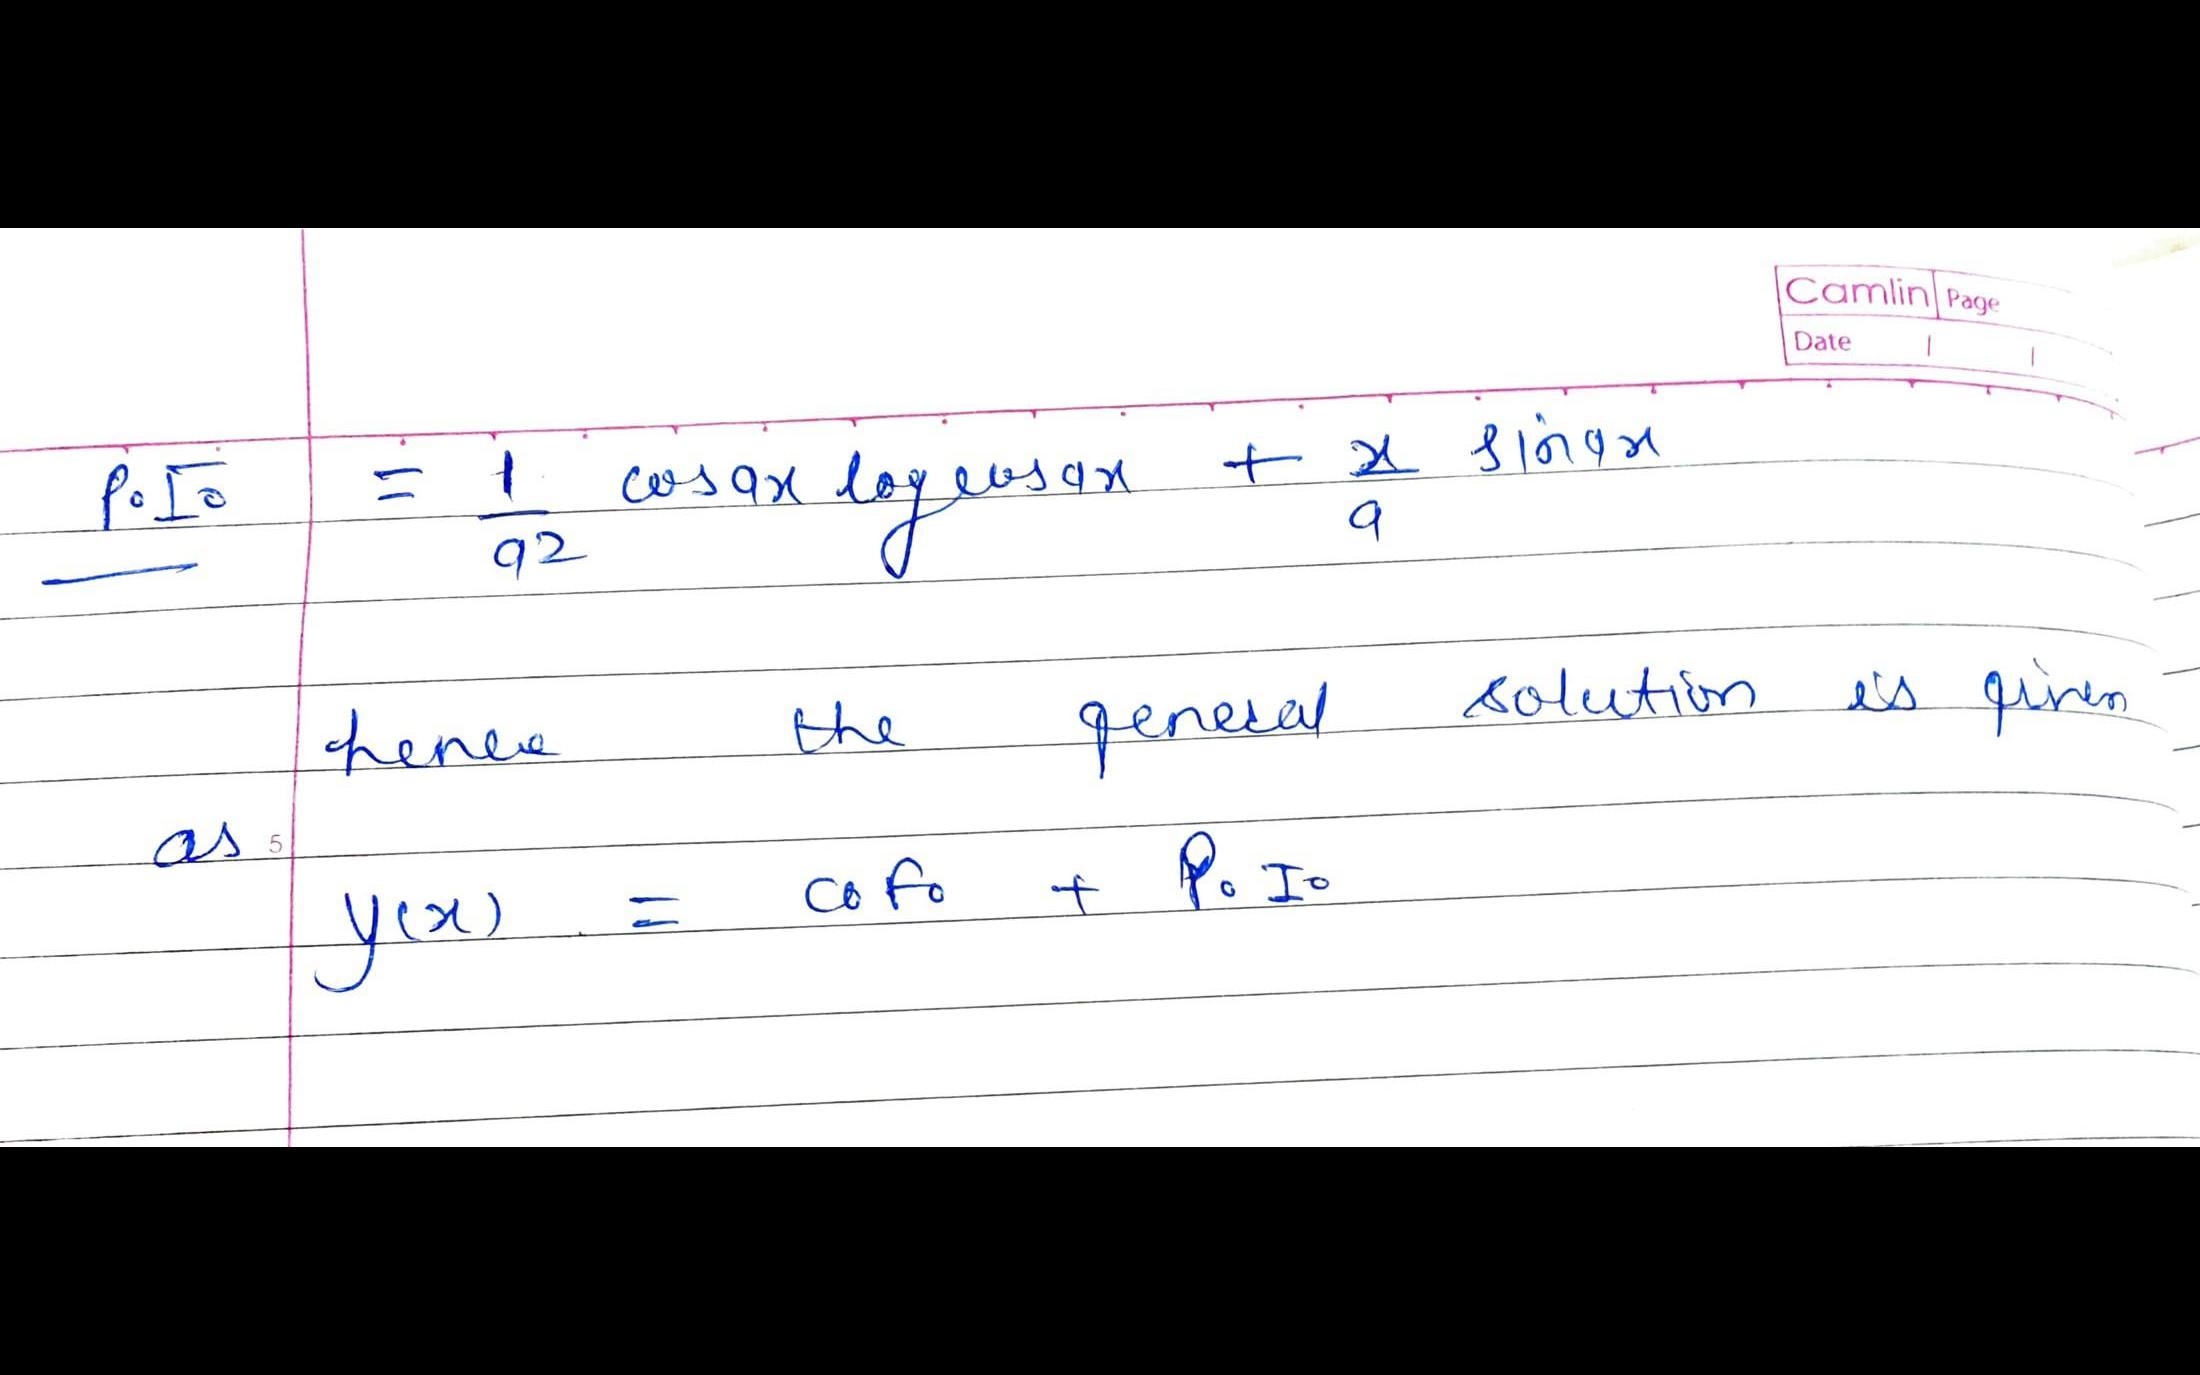 Camlin Page
Date
P.I. = 1/a2 cos ax log cos ax + x/a sin ax
hence the general solution is given
as 5
y(x) = C.F. + P.I.